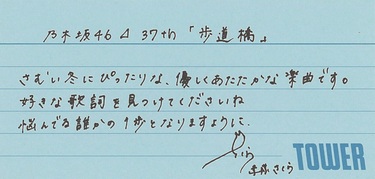 乃木坂46 37th 「歩道橋」
さむい冬にぴったりな、優しくあたたかな楽曲です。
好きな歌詞を見つけてくださいね
悩んでる誰かの1歩となりますように。
さくら
TOWER